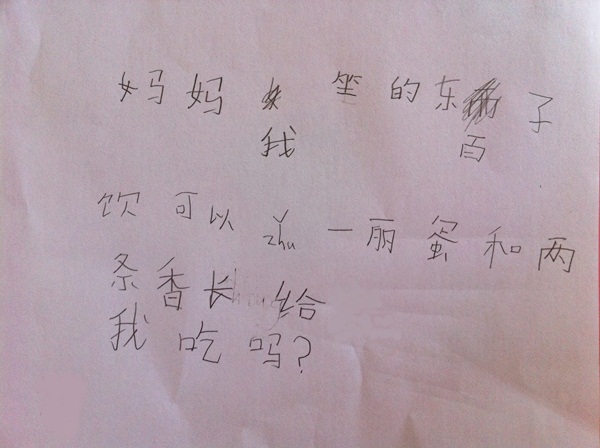 妈妈 坐的东 子
我 百
饮可以 zhǔ 一丽蛋和两
条香长给
我吃吗?